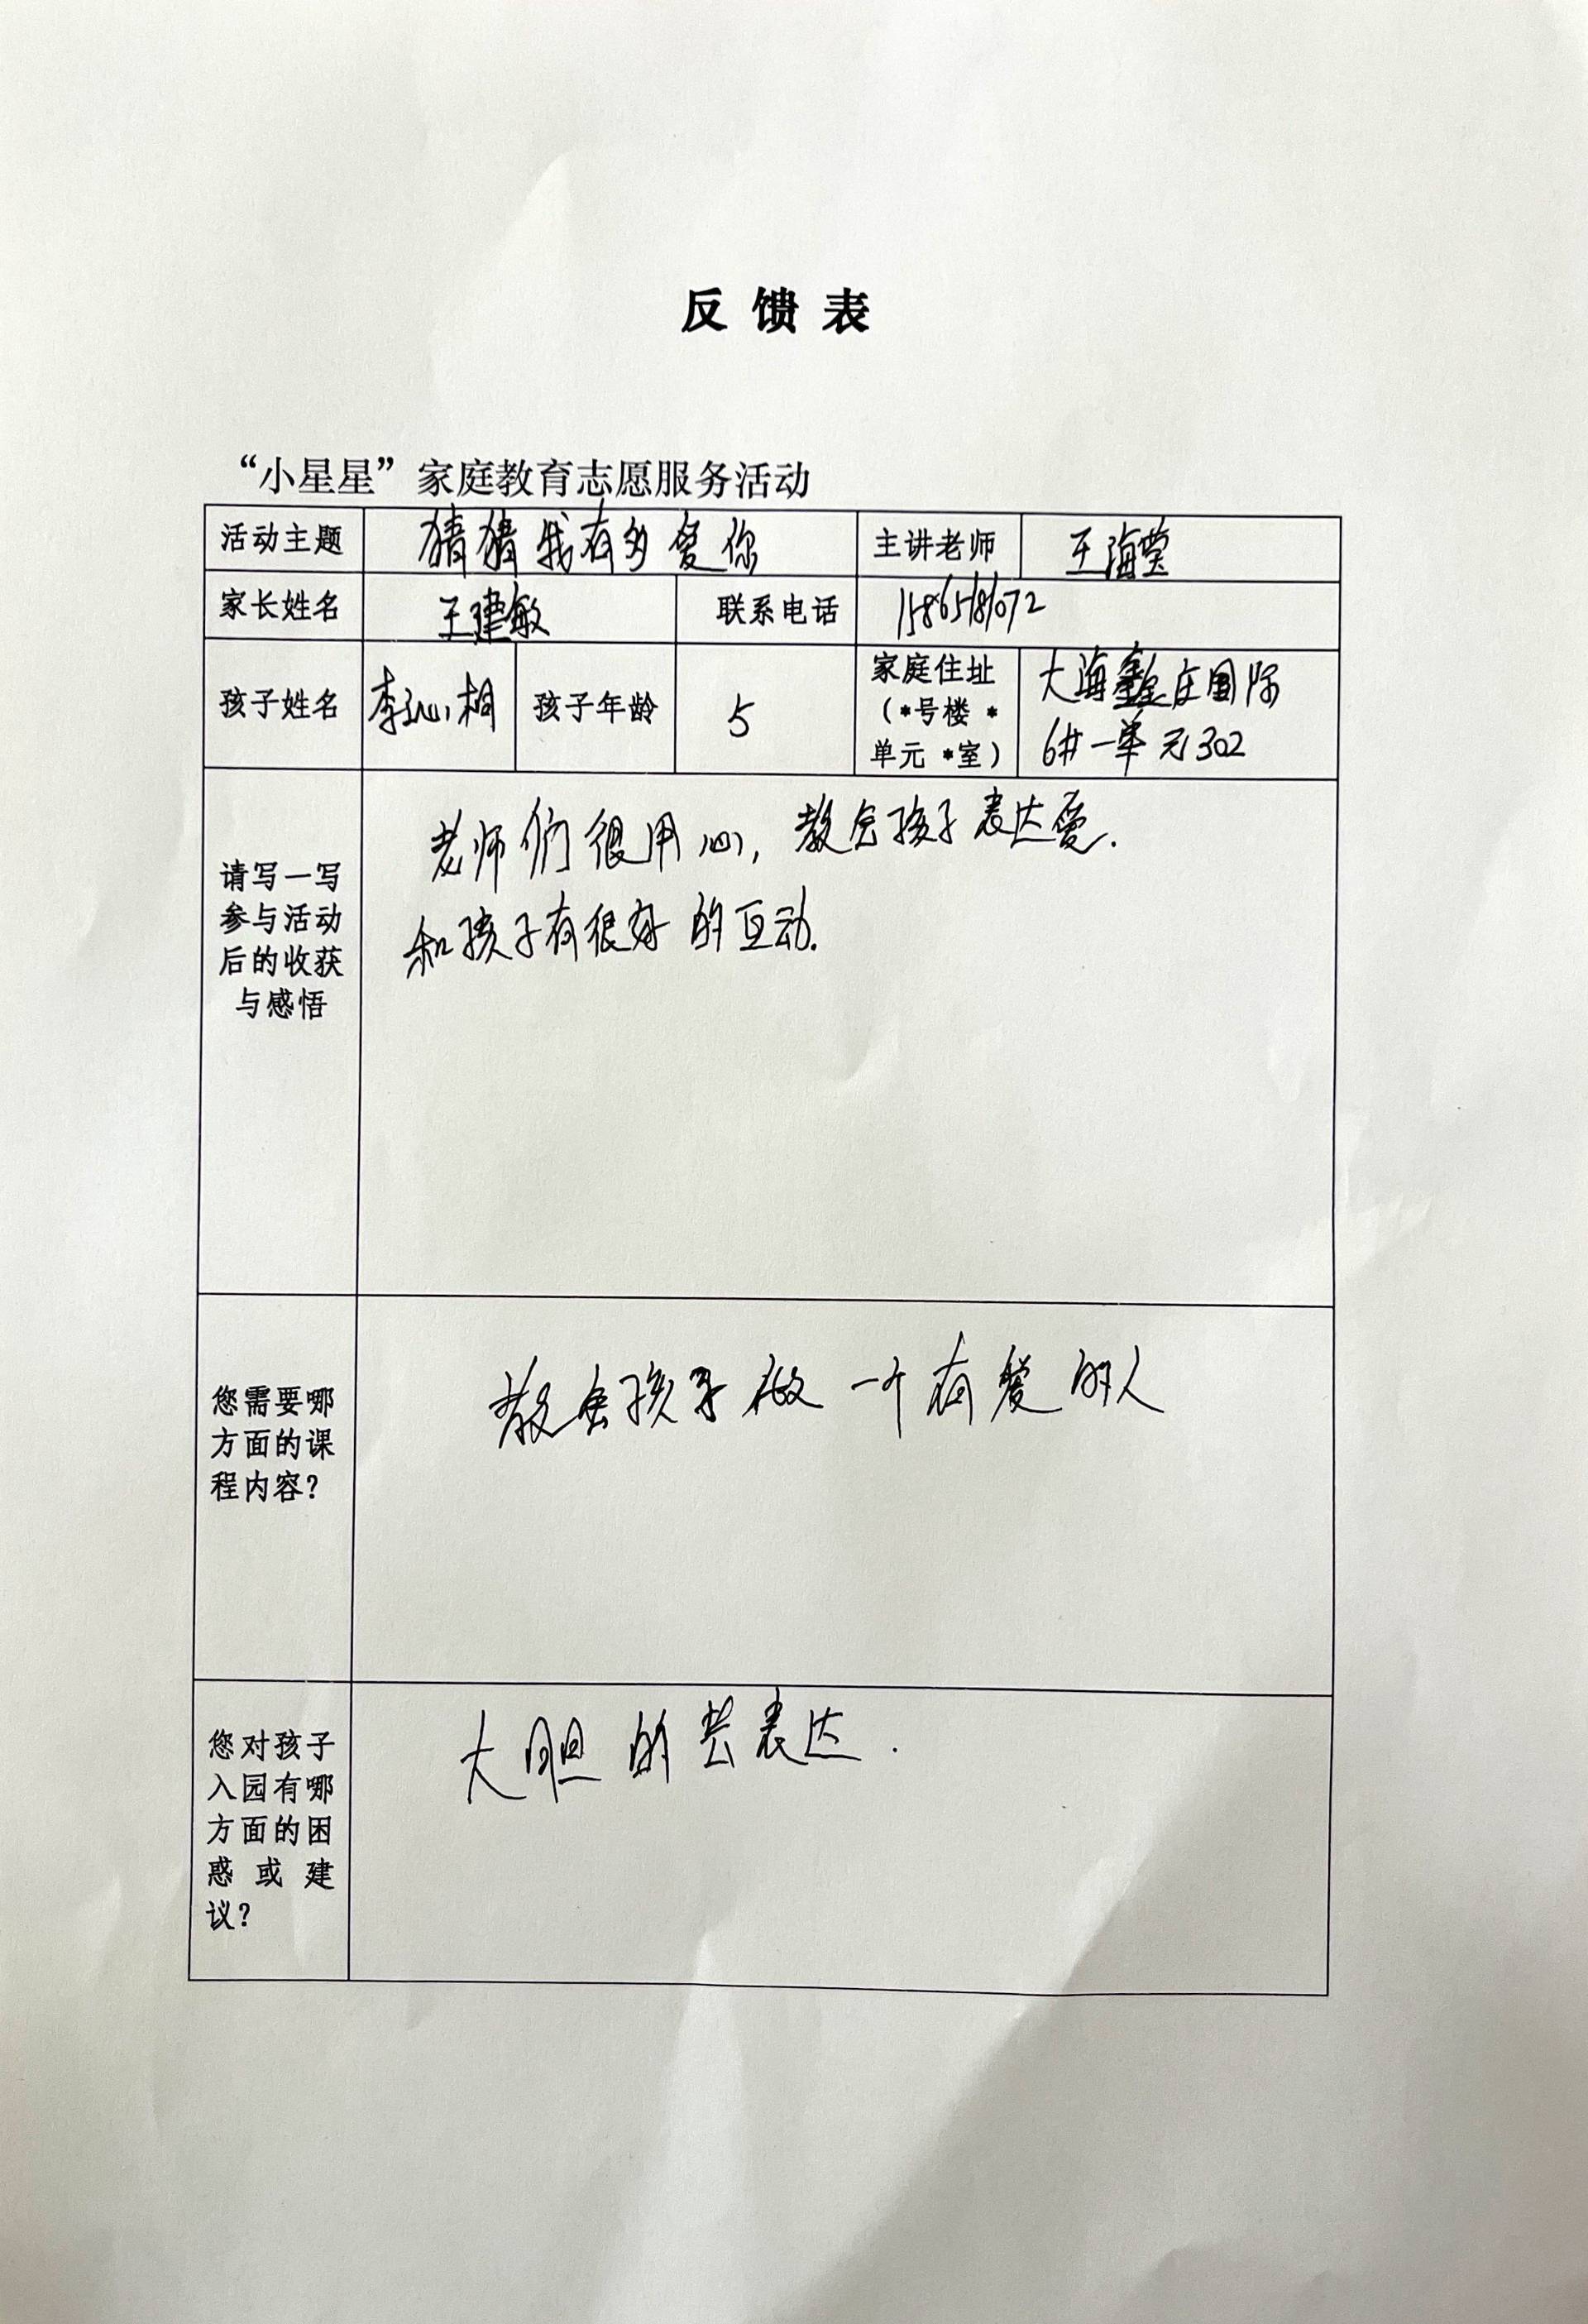 反馈表
“小星星”家庭教育志愿服务活动
活动主题 猜猜我有多爱你 主讲老师 王海莹
家长姓名 王建敏 联系电话
孩子姓名 李沁桐 孩子年龄 5 家庭住址
(*号楼 *
单元 *室)
大海 庄国际
6#一单元302
请写一写
参与活动
后的收获
与感悟
老师们很用心,教会孩子表达爱.
和孩子有很好的互动.
您需要哪
方面的课
程内容?
教会孩子做一个有爱的人
您对孩子
入园有哪
方面的困
惑或建
议?
大胆的去表达.